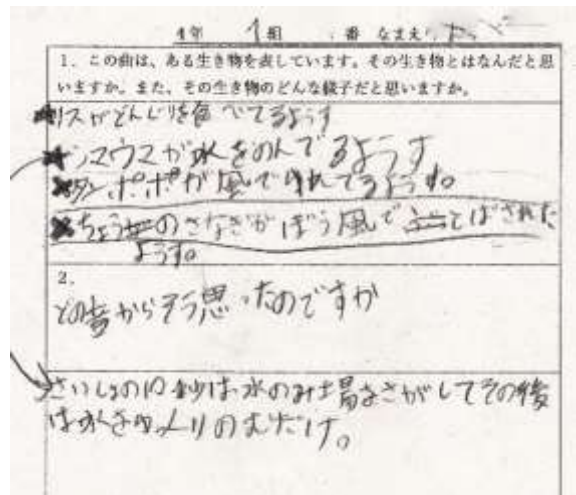 4年 1組 番 なまえ
1. この曲は、ある生き物を表しています。その生き物とはなんだと思
いますか。また、その生き物のどんな様子だと思いますか。
リスがどんぐりを食べてるようす
スウスが水をのんでるようす
タンポポが風でゆれてるようす。
ちょうのさなぎがぼう風でとばされた
ようす。
2.
どの音からそう思ったのですか
さいしょの10秒は水のみ場をさがしてその後
は水をゆっくりのむだけ。